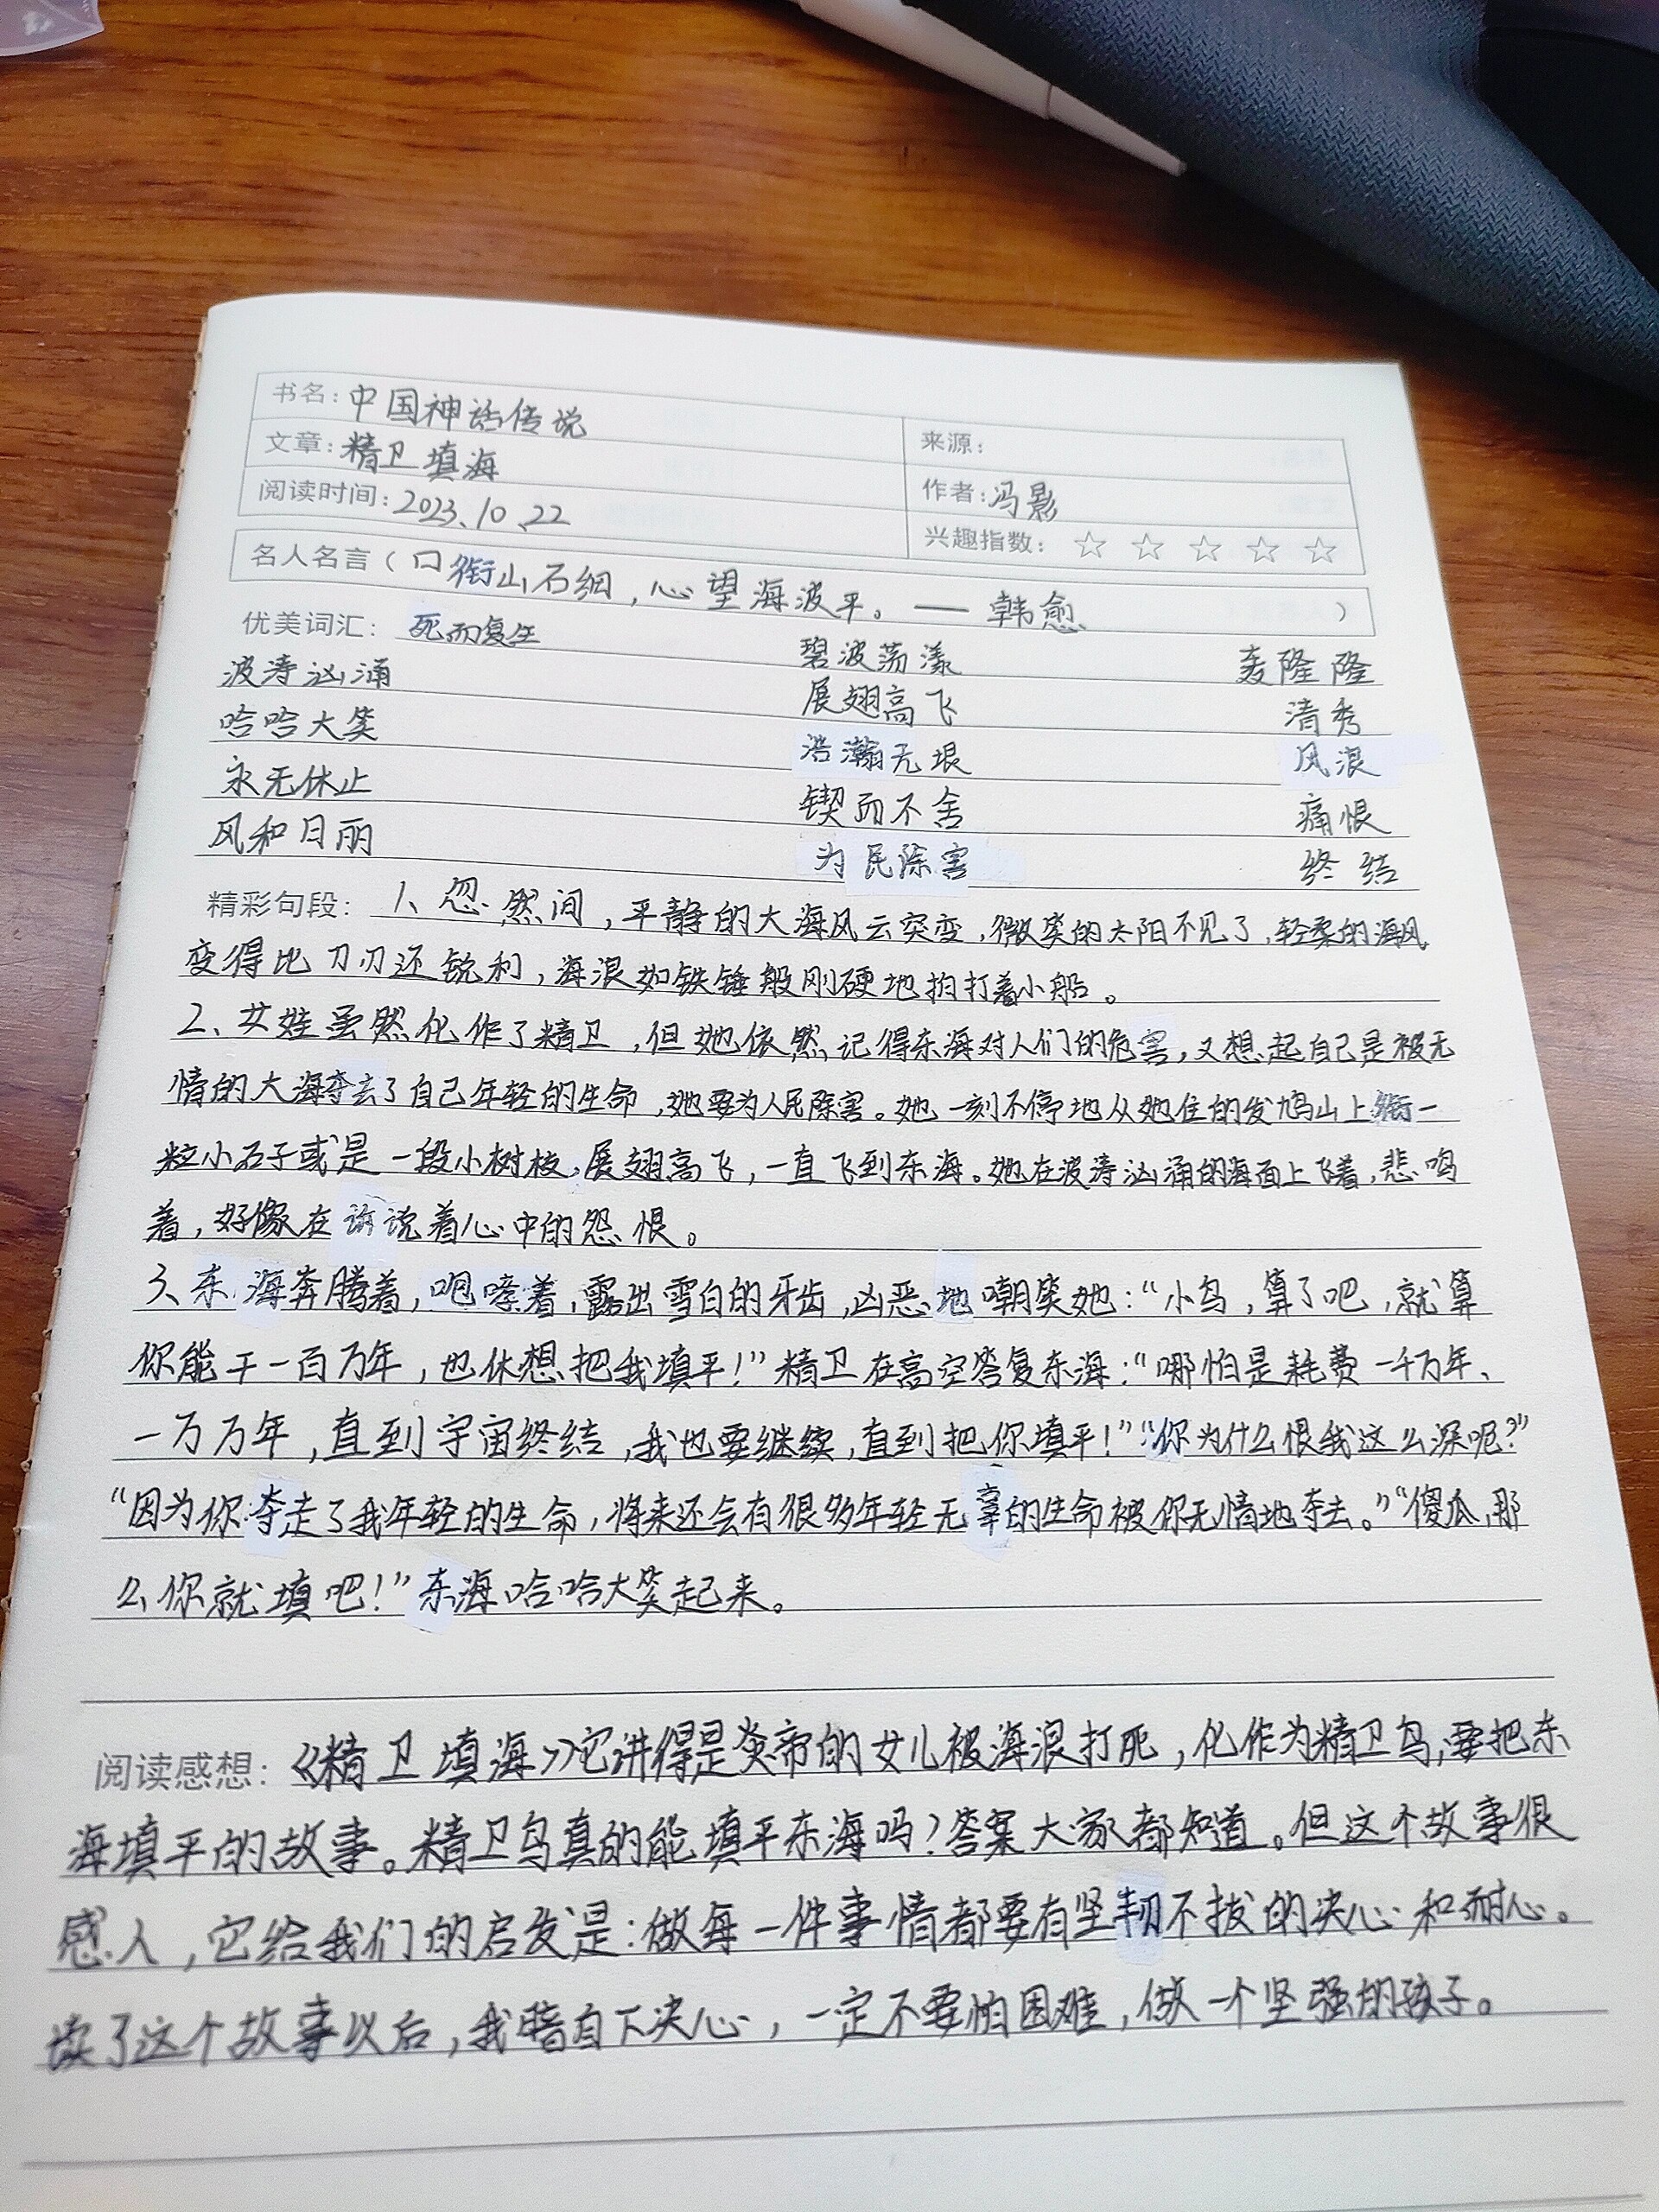 书名：中国神话传说
来源：
文章：精卫填海
作者：冯影
阅读时间：2023.10.22
兴趣指数：☆ ☆ ☆ ☆ ☆
名人名言（口衔山石细，心望海波平。——韩愈）
优美词汇：死而复生 碧波荡漾 轰隆隆
波涛汹涌 展翅高飞 清秀
哈哈大笑 浩瀚无垠 风浪
永无休止 锲而不舍 痛恨
风和日丽 为民除害 终结
精彩句段：1、忽然间，平静的大海风云突变，微笑的太阳不见了，轻柔的海风
变得比刀刃还锐利，海浪如铁锤般刚硬地拍打着小船。
2、女娃虽然化作了精卫，但她依然记得东海对人们的危害，又想起自己是被无
情的大海夺去了自己年轻的生命，她要为人民除害。她一刻不停地从她住的发鸠山上衔一
粒小石子或是一段小树枝，展翅高飞，一直飞到东海。她在波涛汹涌的海面上飞着，悲鸣
着，好像在诉说着心中的怨恨。
3、东海奔腾着，咆哮着，露出雪白的牙齿，凶恶地嘲笑她：“小鸟，算了吧，就算
你能干一百万年，也休想把我填平！”精卫在高空答复东海：“哪怕是耗费一千万年、
一万万年，直到宇宙终结，我也要继续，直到把你填平！”“你为什么恨我这么深呢？”
“因为你夺走了我年轻的生命，将来还会有很多年轻无辜的生命被你无情地夺去。”“傻瓜，那
么你就填吧！”东海哈哈大笑起来。
阅读感想：《精卫填海》它讲得是炎帝的女儿被海浪打死，化作为精卫鸟，要把东
海填平的故事。精卫鸟真的能填平东海吗？答案大家都知道。但这个故事很
感人，它给我们的启发是：做每一件事情都要有坚韧不拔的决心和耐心。
读了这个故事以后，我暗自下决心，一定不要怕困难，做一个坚强的孩子。